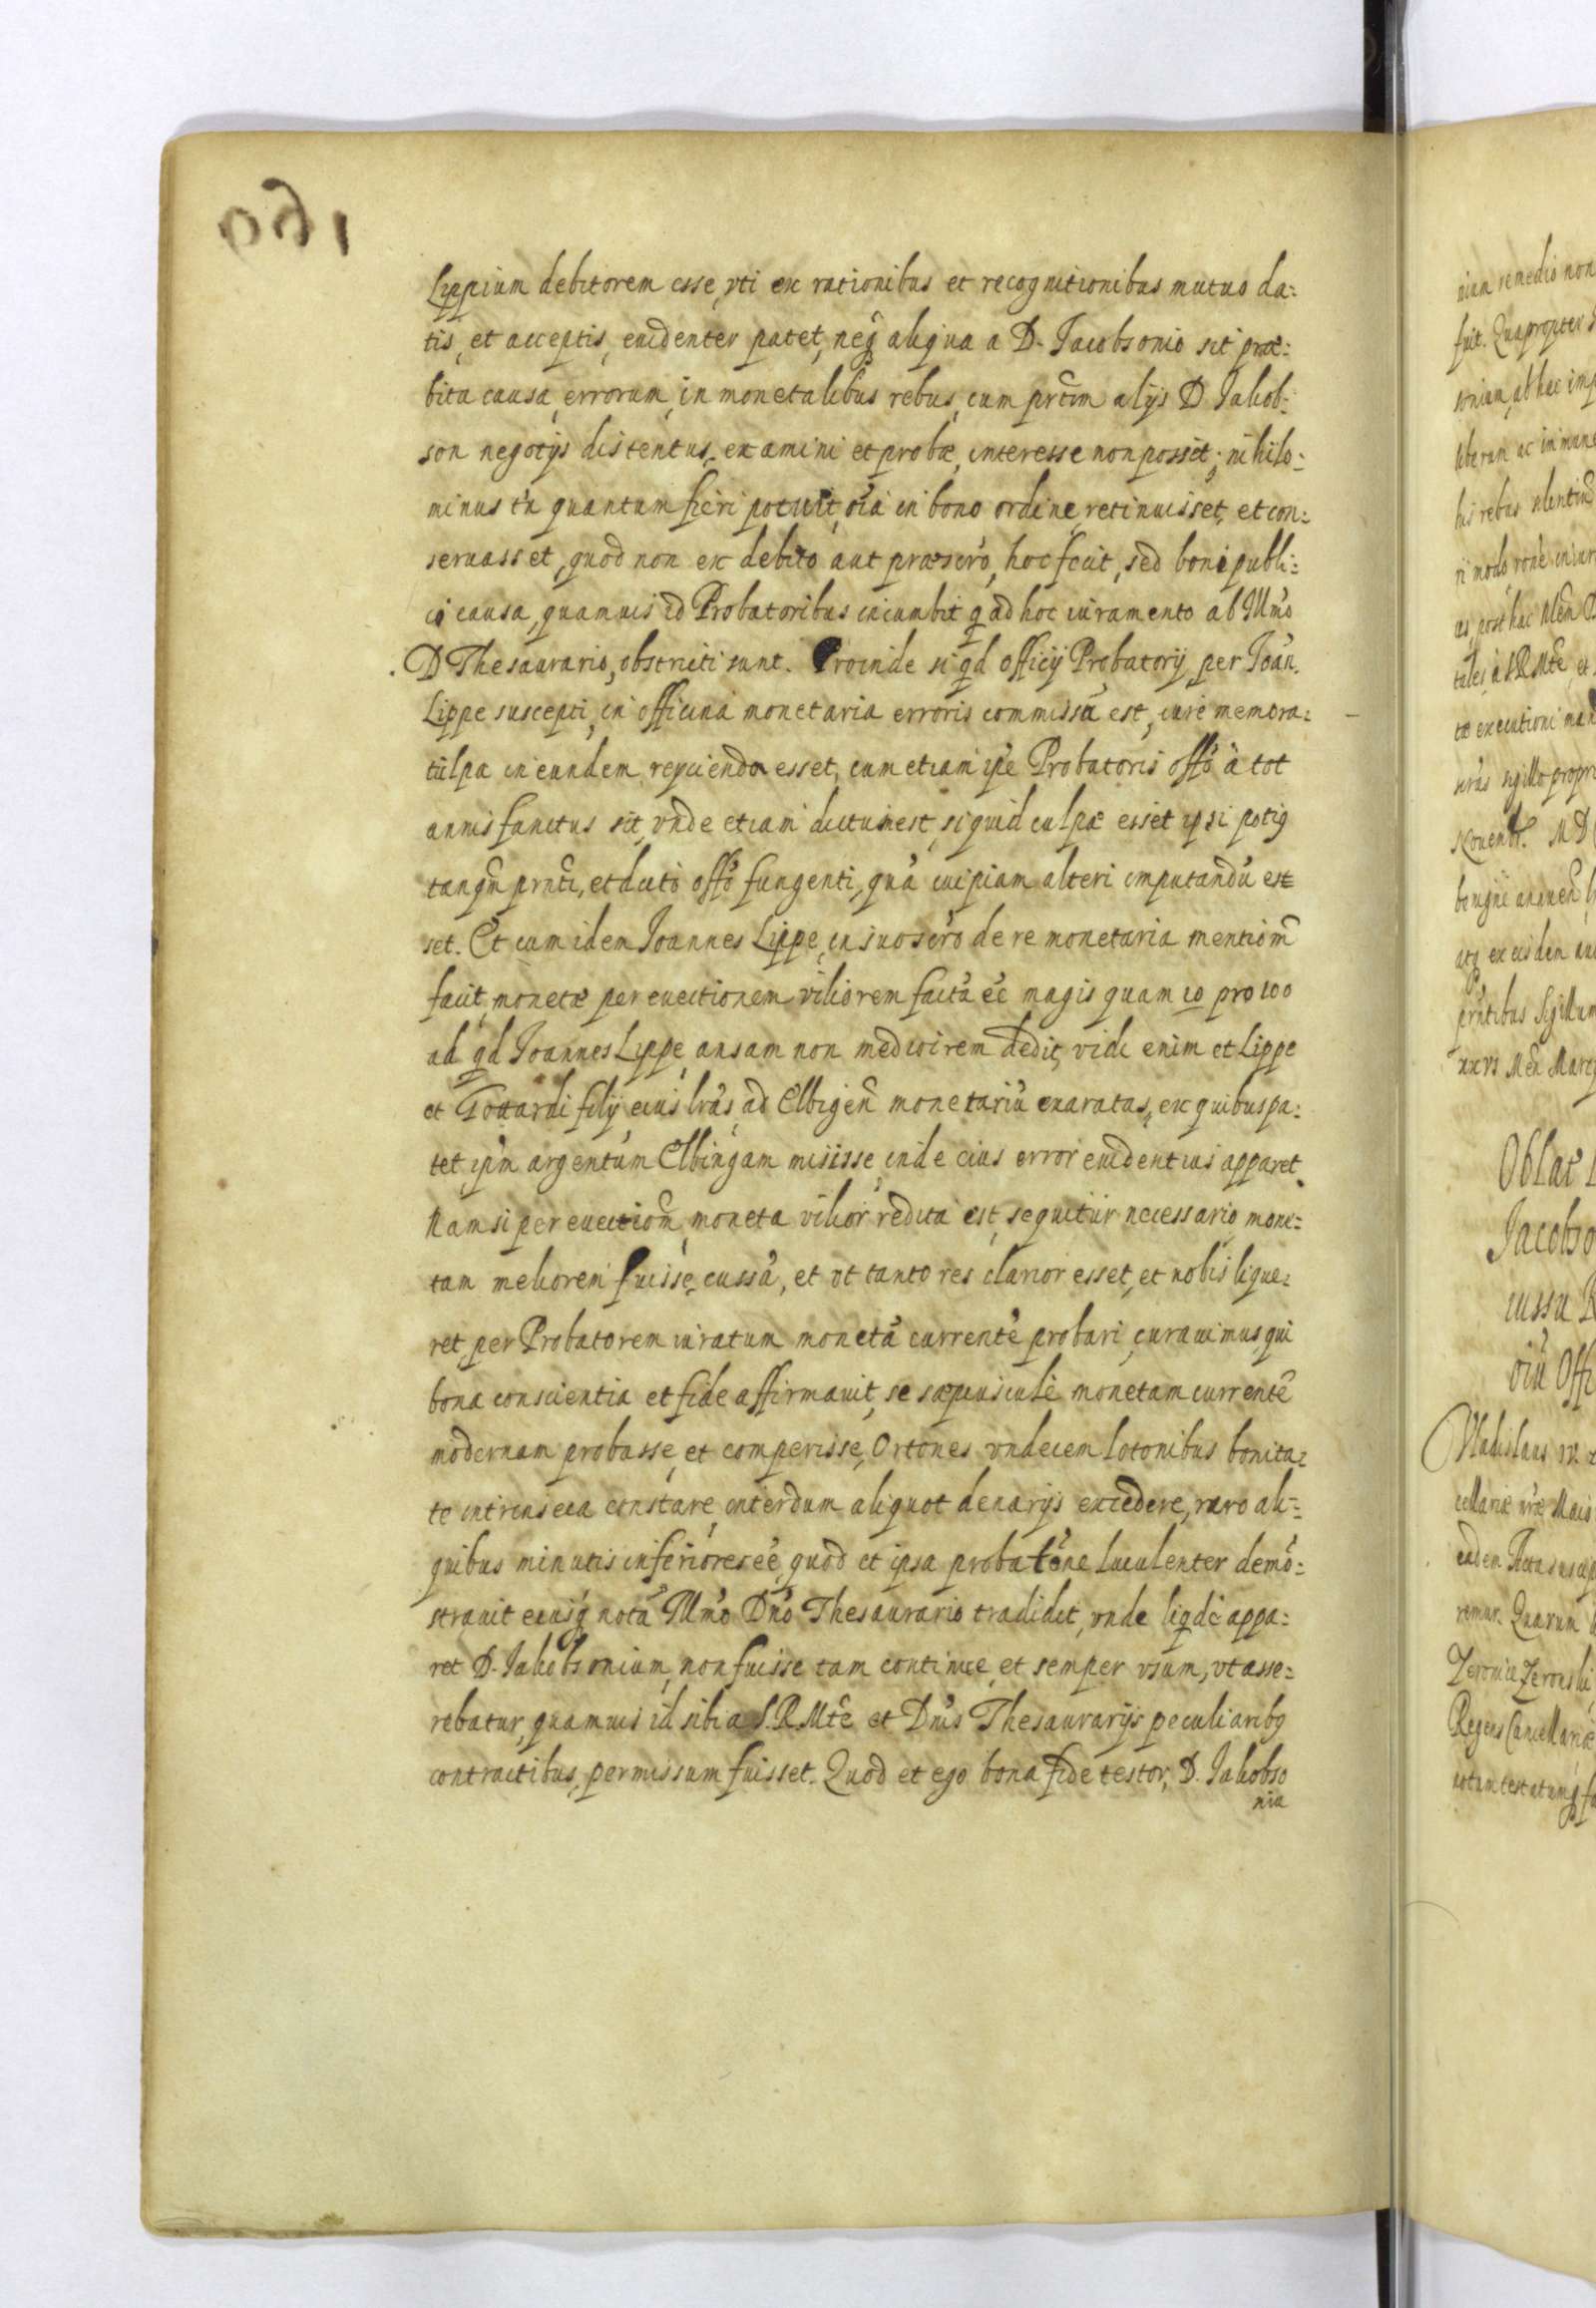 160
Lippium debitorem esse, vti ex rationibus et recognitionibus mutuo da:
tis, et acceptis, euidenter patet, neq aliqua a D. Jacobsonio sit præ:
bita causa, errorum, in monetalibus rebus, cum prtim alijs D Jakob:
son negotijs distentus, examini et probæ, interesse non possit; nihilo:
minus tn quantum fieri potuit, oia in bono ordine, retinuisset, et con:
seruasset, quod non ex debito aut præscro, hoc fecit, sed boni publi:
ci causa, quamuis id Probatoribus incumbit q ad hoc iuramento ab Illmo
D Thesaurario, obstricti sunt. Proinde si qd officij Probatorij per Joan.
Lippe suscepti, in officina monetaria erroris commissu est, iure memora:
culpa in eundem reycienda esset, cum etiam ipe Probatoris offo a tot
annis functus sit, vnde etiam dictum est, si quid culpæ esset ipsi potiq
tanqm prnti, et dicto offo fungenti, qua cuipiam alteri imputandu es
set. Et cum idem Joannes Lippe, in suo scro de re monetaria mentiom
facit, monetæ per euectionem viliorem facta ee magis quam 10 pro 100
ad qd Joannes Lippe, ansam non mediocrem dedit, vidi enim et Lippe
et Gottardi filij eius lras, ad Elbigen monetariu exaratas, ex quibus pa:
tet, ipm argentum Elbingam misisse, inde eius error euidentius apparet.
Nam si per euectiom, moneta vilior reddita est, sequitur necessario mone:
tam meliorem fuisse cussa, et vt tanto res clarior esset, et nobis lique:
ret, per Probatorem iuratum moneta currente probari, curauimus, qui
bona conscientia et fide affirmauit, se sæpiuscule monetam currente
modernam probasse, et comperisse, Ortones vndecem lotonibus bonita:
te intrinseca constare, interdum aliquot denarijs excedere, raro ali:
quibus minutis inferiores ee, quod et ipsa probatone luculenter demo:
strauit eiusq nota Illmo Dno Thesaurario tradidit, vnde liqde appa:
ret D. Jakobsonium, non fuisse tam continue, et semper vsum, vt asse:
rebatur, quamuis id sibi a S.R.Mte et Dnis Thesaurarijs peculiaribq
contractibus, permissum fuisset. Quod et ego bona fide testor, D. Jakobso
nia
nium remedio non
fuit. Quapropter
sonium, ab hac
liberum ac immun
his rebus
tæ executioni
Nouembr. M D
Oblat
Jacobso
iussu
Offi
Vladislaus
Regens Cancellariæ